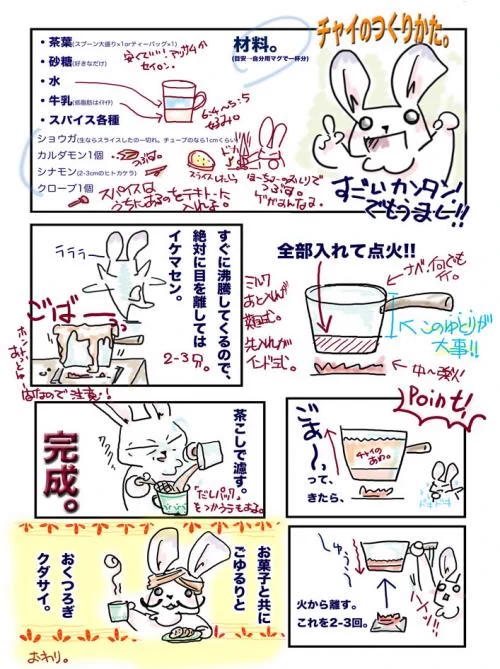 チャイのつくりかた。
材料。
(目安…自分用マグで一杯分)
・茶葉(スプーン大盛り×1orティーバッグ×1)
安くていい!アッサムか
セイロン。
・砂糖(好きなだけ)
・水
・牛乳(低脂肪はｲﾏｲﾁ)
6:4〜5:5
お好み。
・スパイス各種
ショウガ(生ならスライスしたの一切れ。チューブのなら1cmくらい)
カルダモン1個
つぶす。
シナモン(2-3cmのヒトカケラ)
クローブ1個
スライスしたら
ほーちょーの
つぶす。
スパイスは
うちにあるのをテキトーに
入れよ。
すごいカンタン
でもうまし!!
全部入れて点火!!
ナベ、何でも
可。
ミルク
あと入れが
先入れが
インド式。
このゆとりが
大事!!
中〜強火!
すぐに沸騰してくるので、
絶対に目を離しては
イケマセン。
2-3分。
ラララー
ごばー
なので注意!
Point!
ごぁ〜〜
って、
きたら、
チャイの
あわ。
ドキドキ
火から離す。
これを2-3回。
しゅぅぅ
茶こしで濾す。
「だしパック」
をつかう手もある。
完成。
お菓子と共に
ごゆるりと
おくつろぎ
クダサイ。
おわり。